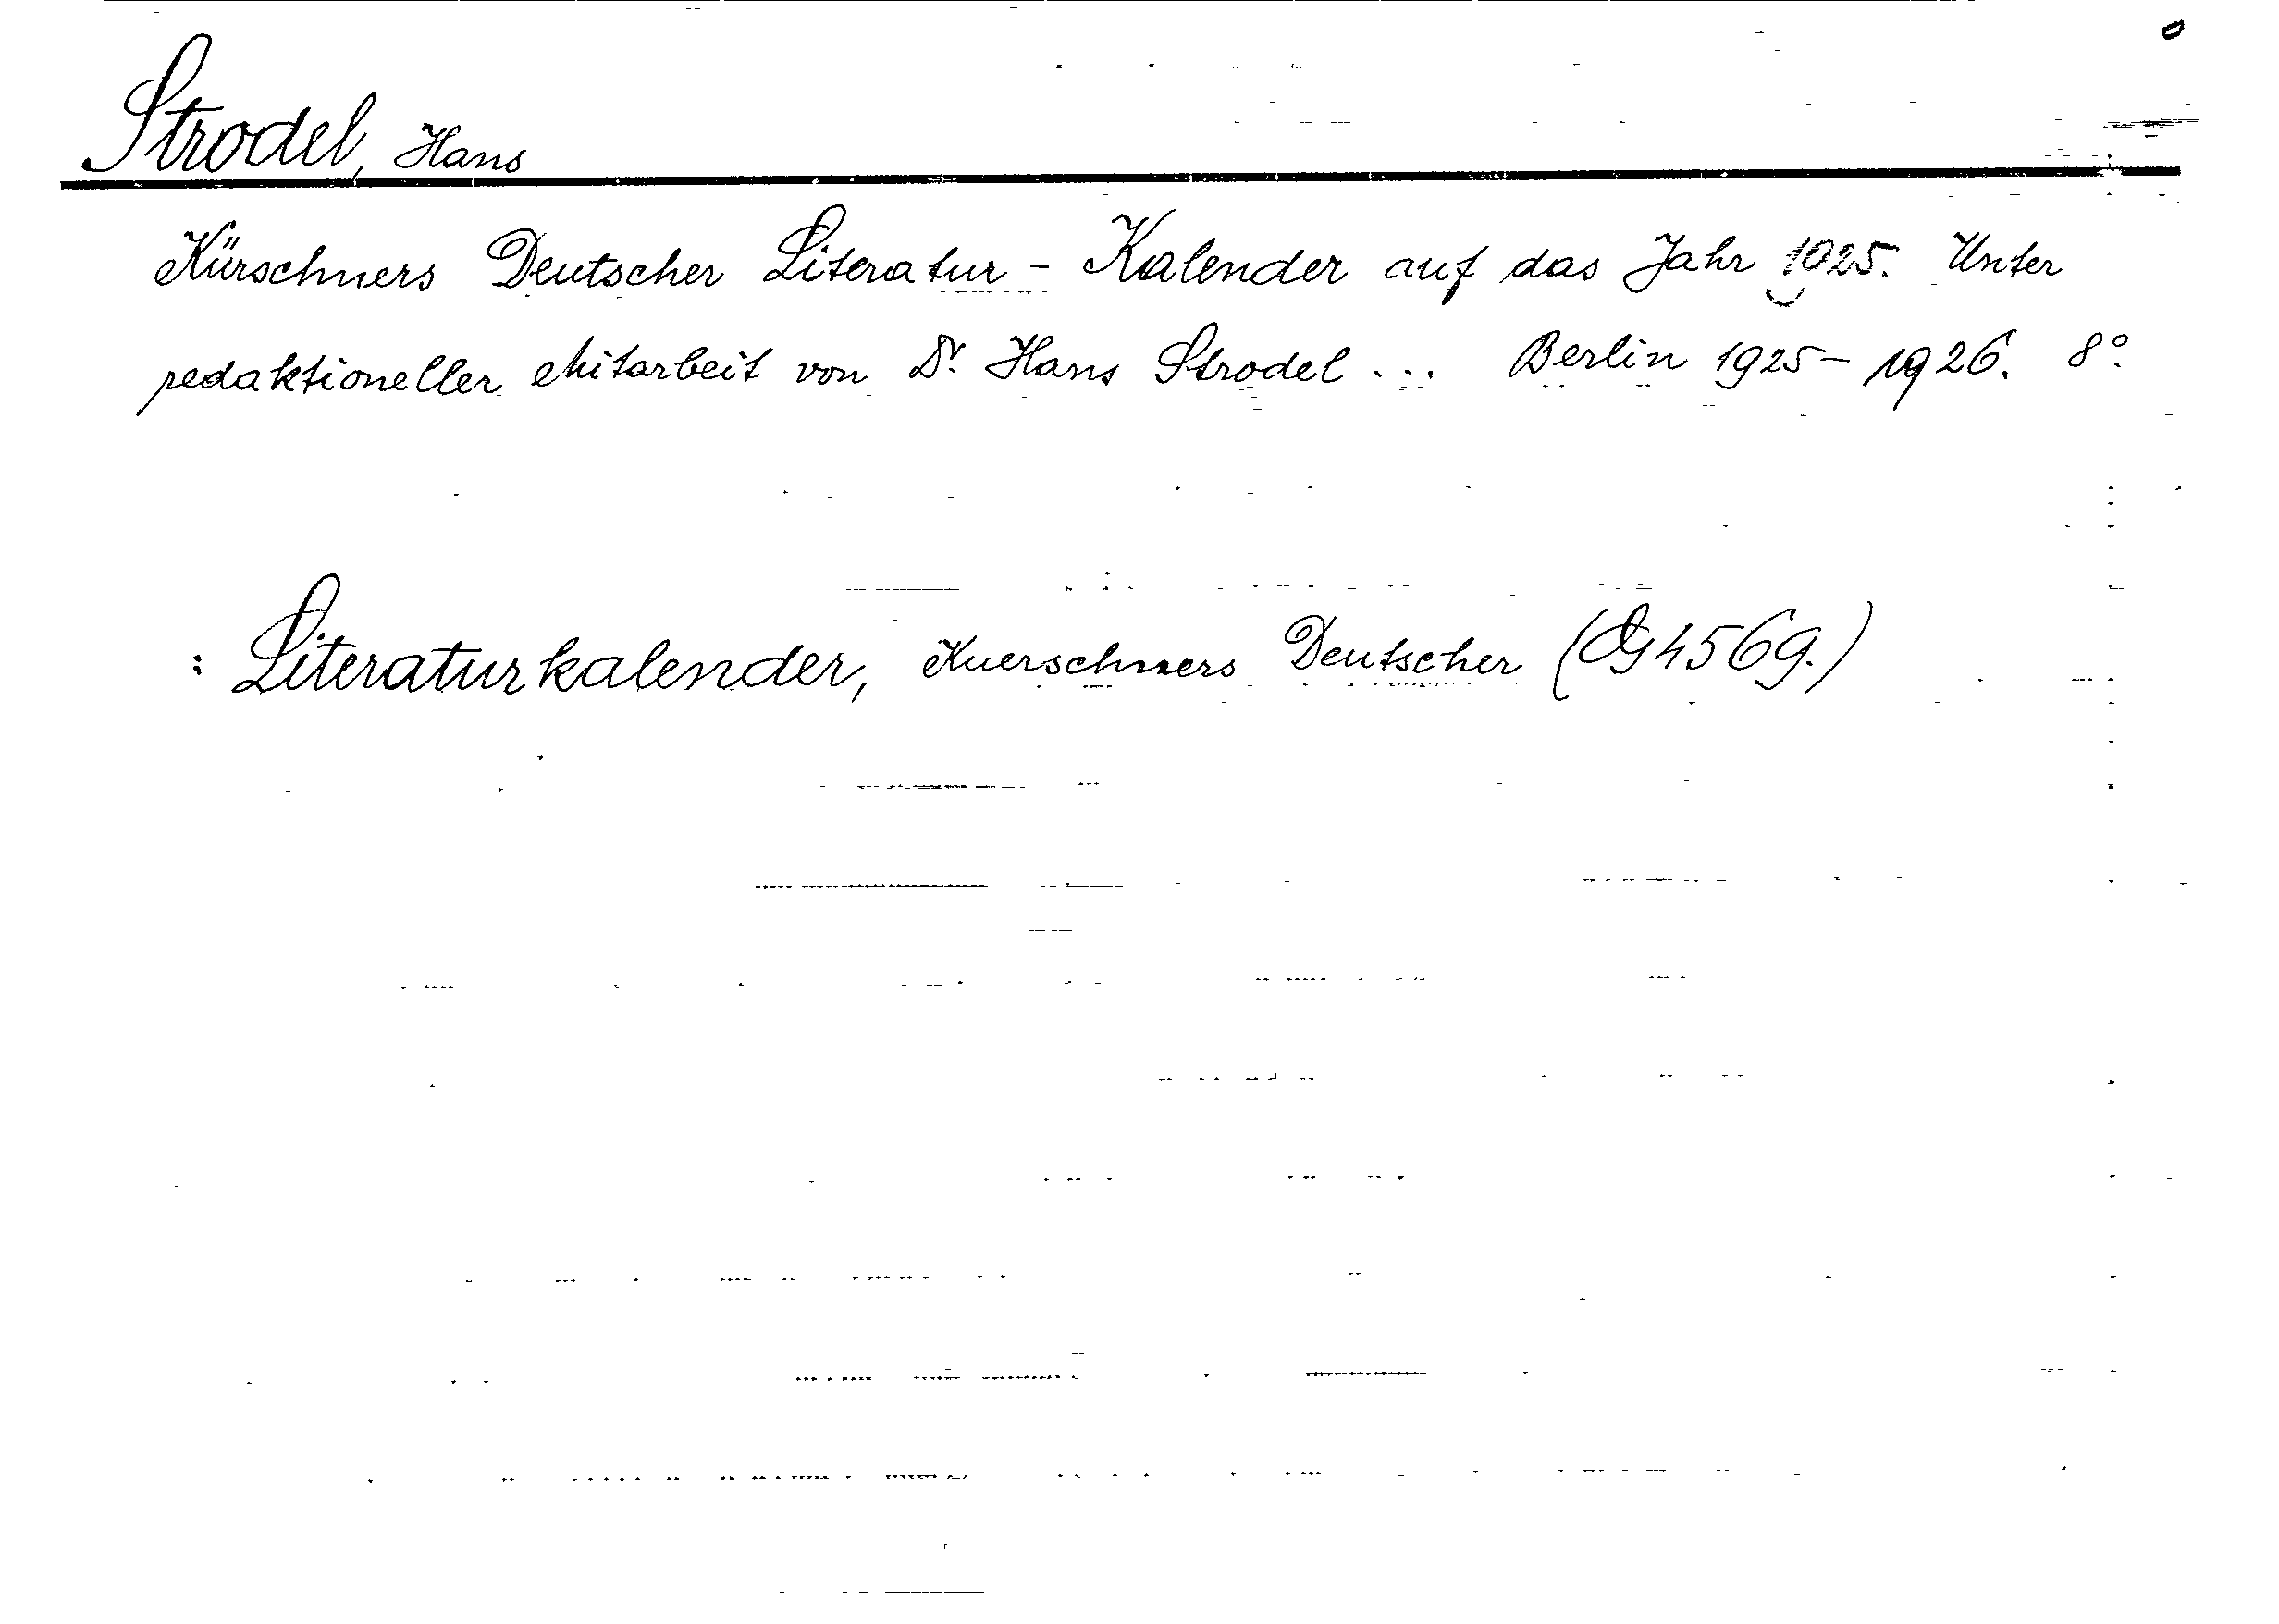 Strodel, Hans
Kürschners Deutscher Literatur-Kalender auf das Jahr 1925. Unter
redaktioneller Mitarbeit von Dr. Hans Strodel ... Berlin 1925-1926. 8°.
: Literaturkalender, Kuerschners Deutscher